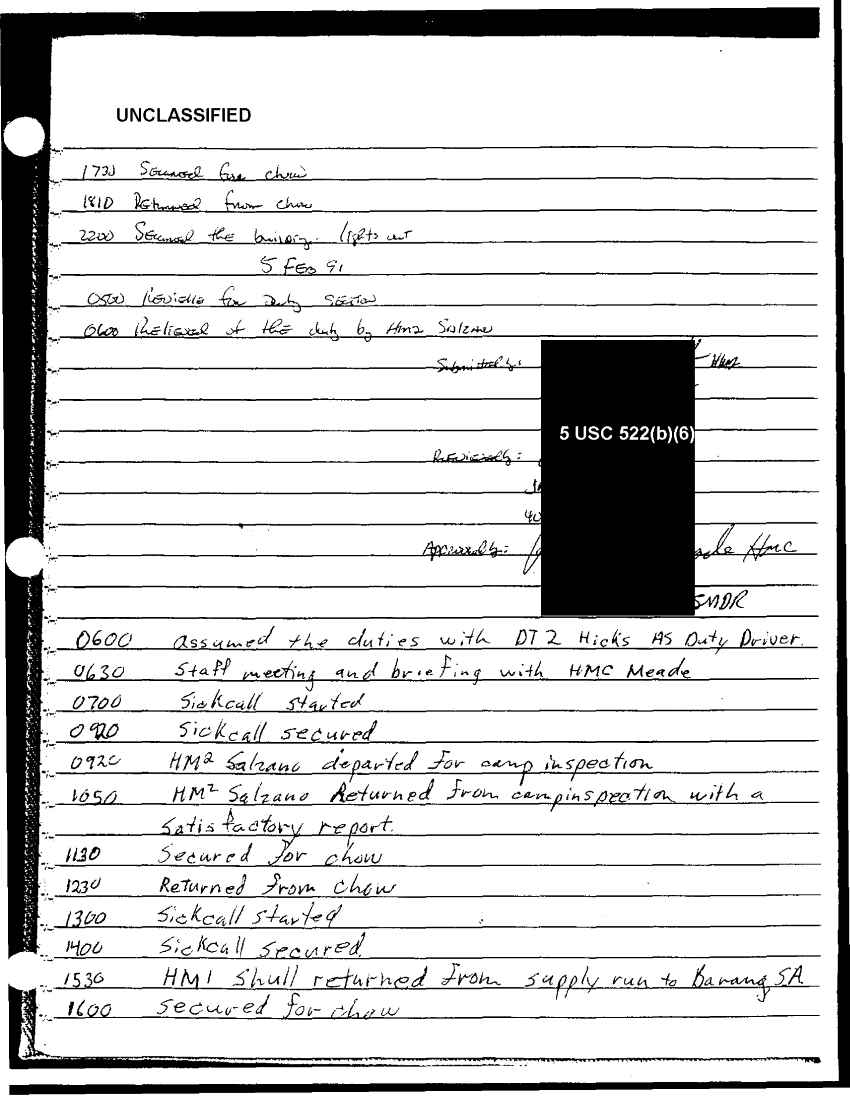 UNCLASSIFIED
1730 Secured for chow
1810 Returned from chow
2200 Secured the building. lights out
5 FEB 91
0500 Reveille for Duty Section
0600 Relieved of the duty by HM2 Salzano
Submitted by: HM2
5 USC 522(b)(6)
Reviewed by:
Approved by: HMC
SMDR
0600 assumed the duties with DT2 Hicks AS Duty Driver.
0630 Staff meeting and briefing with HMC Meade
0700 Sickcall started
0920 Sickcall secured
0920 HM2 Salzano departed for camp inspection
1050 HM2 Salzano Returned from camp inspection with a
satisfactory report.
1130 Secured for chow
1230 Returned from Chow
1300 Sickcall started
1400 Sickcall secured.
1530 HM1 Shull returned from supply run to Barang SA
1600 secured for chow